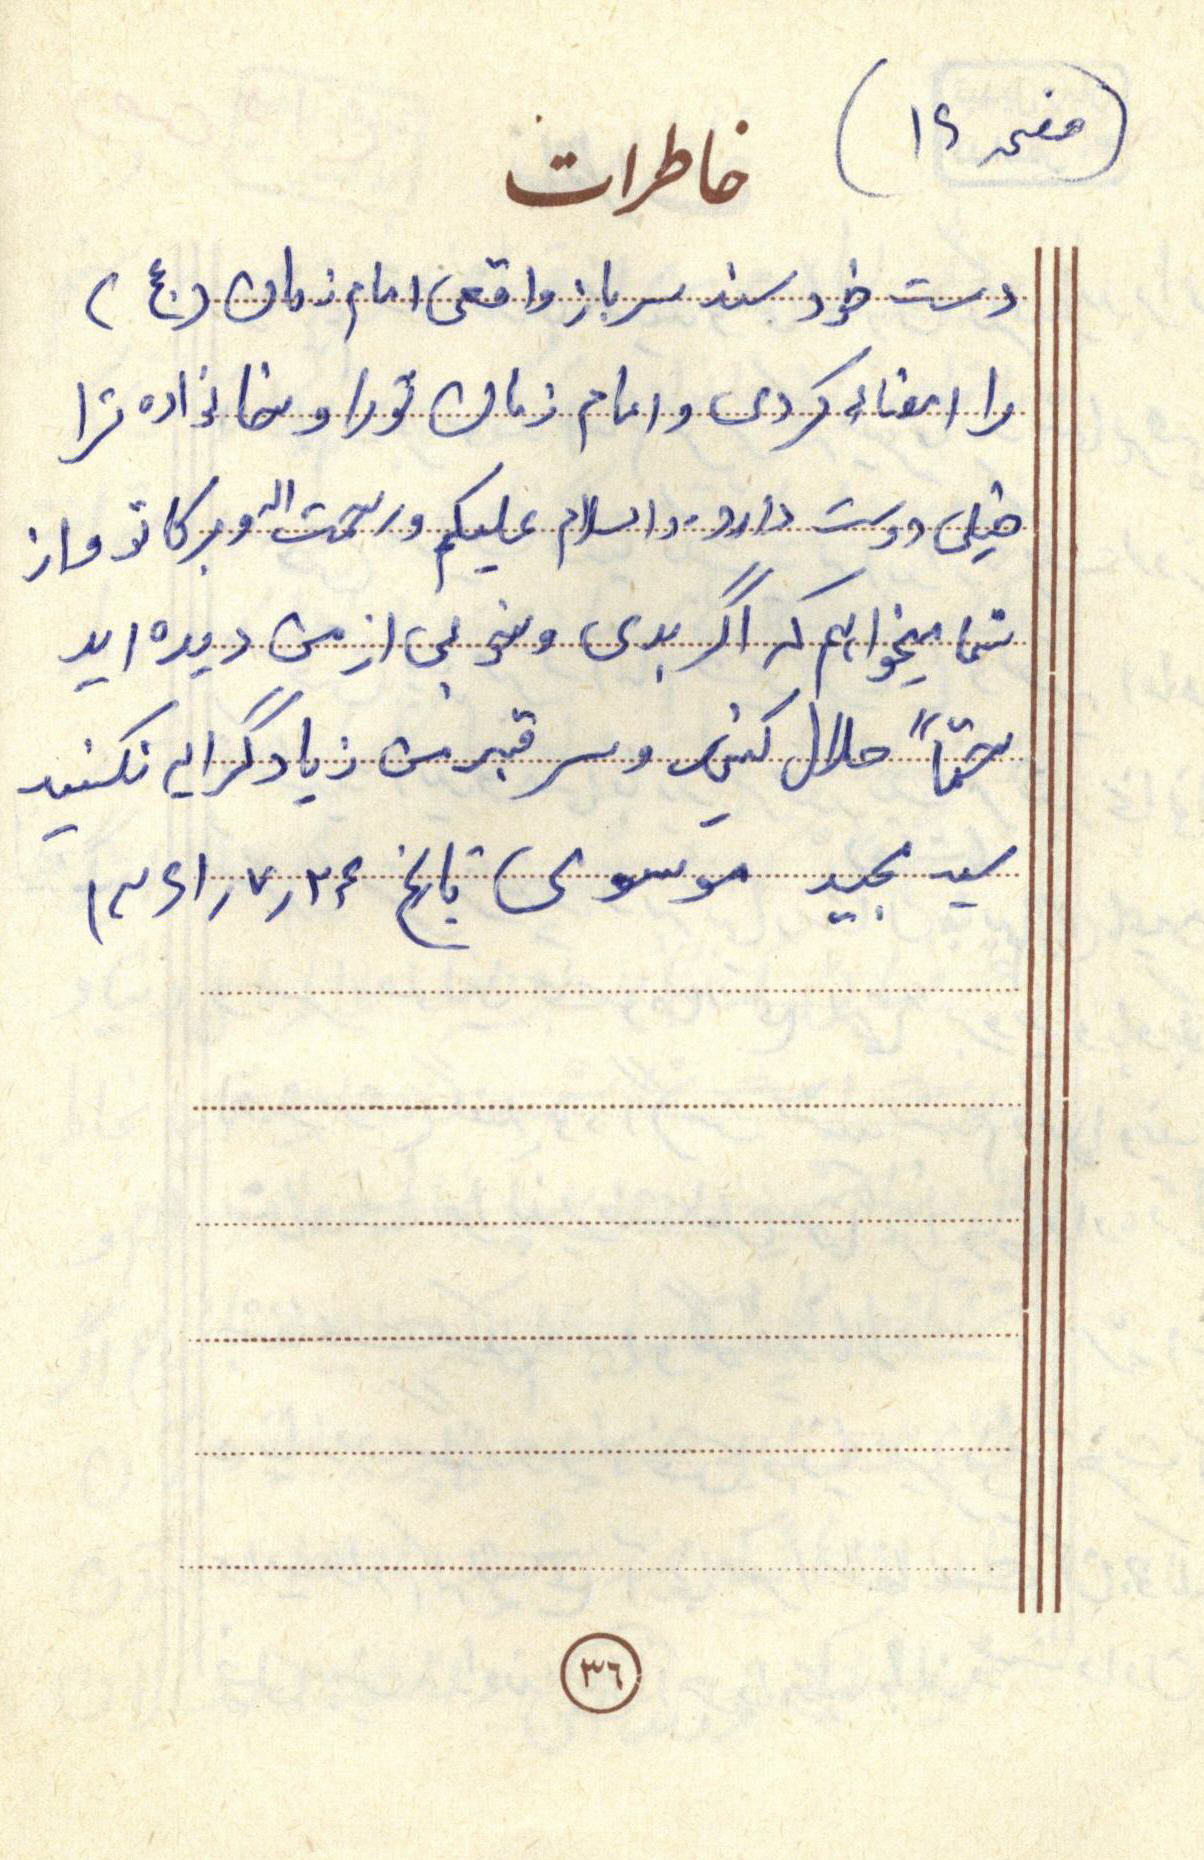 (صفحه ۱۶)
خاطرات
دست خود سند سرباز واقعی امام زمان (عج)
را امضاء کردی و امام زمان تو را و خانواده ترا
خیلی دوست دارد. والسلام علیکم و رحمت اله و برکاتو و از
شما میخواهم که اگر بدی و خوبی از من دیده اید
حتماً حلال کنید و سر قبر من زیاد گرایی نکنید
سید مجید موسوی تاریخ ۱۳۶۱٫۷٫۲۶
۳۶